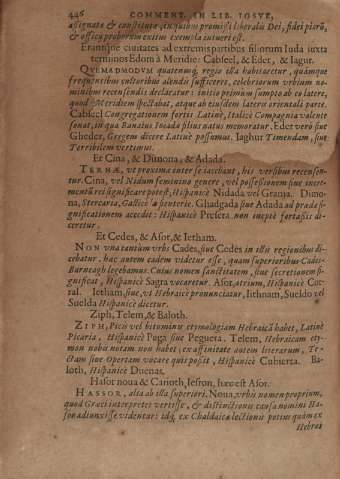 446 COMMENT. IN LIB. IOSVE,
assignato & constituto ; ex quibus promissi liberalis Dei, fidei piorũ,
& officij proborum eximi exempla intueri est.
Erantque ciuitates ad extremis partibus filiorum Iuda iuxta
terminos Edom à Meridie: Cabseel, & Eder, & Iagur.
QVEMADMODVM quaterna regio ista habitaretur, quámque
frequentibus cultoribus abundè suffecerit, celeriorum vrbium no-
minibus recensendis declaratur : initio primùm sumpto ab eo latere,
quod Meridiem spectabat, atque ab eiusdem lateris orientali parte.
Cabseel Congregationem fortis Latinè, Italicè Compagnia valente
sonat, in qua Banaias Ioiadæ filius natus memoratur. Eder verò siue
Gheder, Gregem dicere Latinè possumus. Iaghur Timendam, siue
Terribilem vertimus.
Et Cina, & Dimona, & Adada.
TERNÆ, vt proxima inter se iacebant, his versibus recensen-
tur. Cina, vel Nidum feminino genere, vel possessionem siue incre-
mentũ rei significare potest, Hispanicè Nidada vel Granja. Dimo-
na, Stercoria, Gallicè la fienterie. Ghadgada siue Adada ad prædæ si-
gnificationem accedit : Hispanicè Presera. non ineptè fortassis di-
ceretur.
Et Cedes, & Asor, & Ietham.
NON vna tantùm vrbs Cades, siue Cedes in illis regionibus di-
cebatur. hæc autem eadem videtur esse, quam superioribus Cades-
Barneagh legebamus. Cuius nomen sanctitatem, siue secretionem si-
gnificat, Hispanicè Sagra vocaretur. Asor, atrium, Hispanicè Cor-
ral. Ietham, siue, vt Hebraicè pronunciatur, Iithnam, Sueldo vel
Suelda Hispanicè dicetur.
Ziph, Telem, & Baloth.
ZIPH, Picis vel bituminis etymologiam Hebraicã habet, Latinè
Picaria, Hispanicè Pega siue Peguera. Telem, Hebraicam ety-
mon nobis notam non habet, ex affinitate autem literarum, Te-
ctam siue Opertam vocare quis possit, Hispanicè Cubierta. Ba-
loth, Hispanicè Duenas.
Hasor noua & Carioth, Iesron, hæc est Asor.
HASSOR, alta ab illa superiori. Noua, vrbis nomen proprium,
quod Græci interpretes vertisse, & distinctionis causa nomini Ha-
sor adiunxisse videntur: idq, ex Chaldaica lectione potius quàm ex
Hebræa